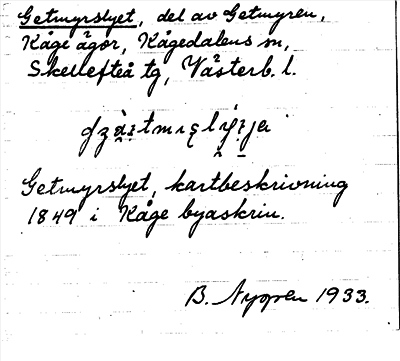 Getmyrslyet, del av Getmyren,
Kåge ägor, Kågedalens sn,
Skellefteå tg, Västerb. l.
Getmyrslyet, kartbeskrivning
1849 i Kåge byaskrin.
B. Nygren 1933.